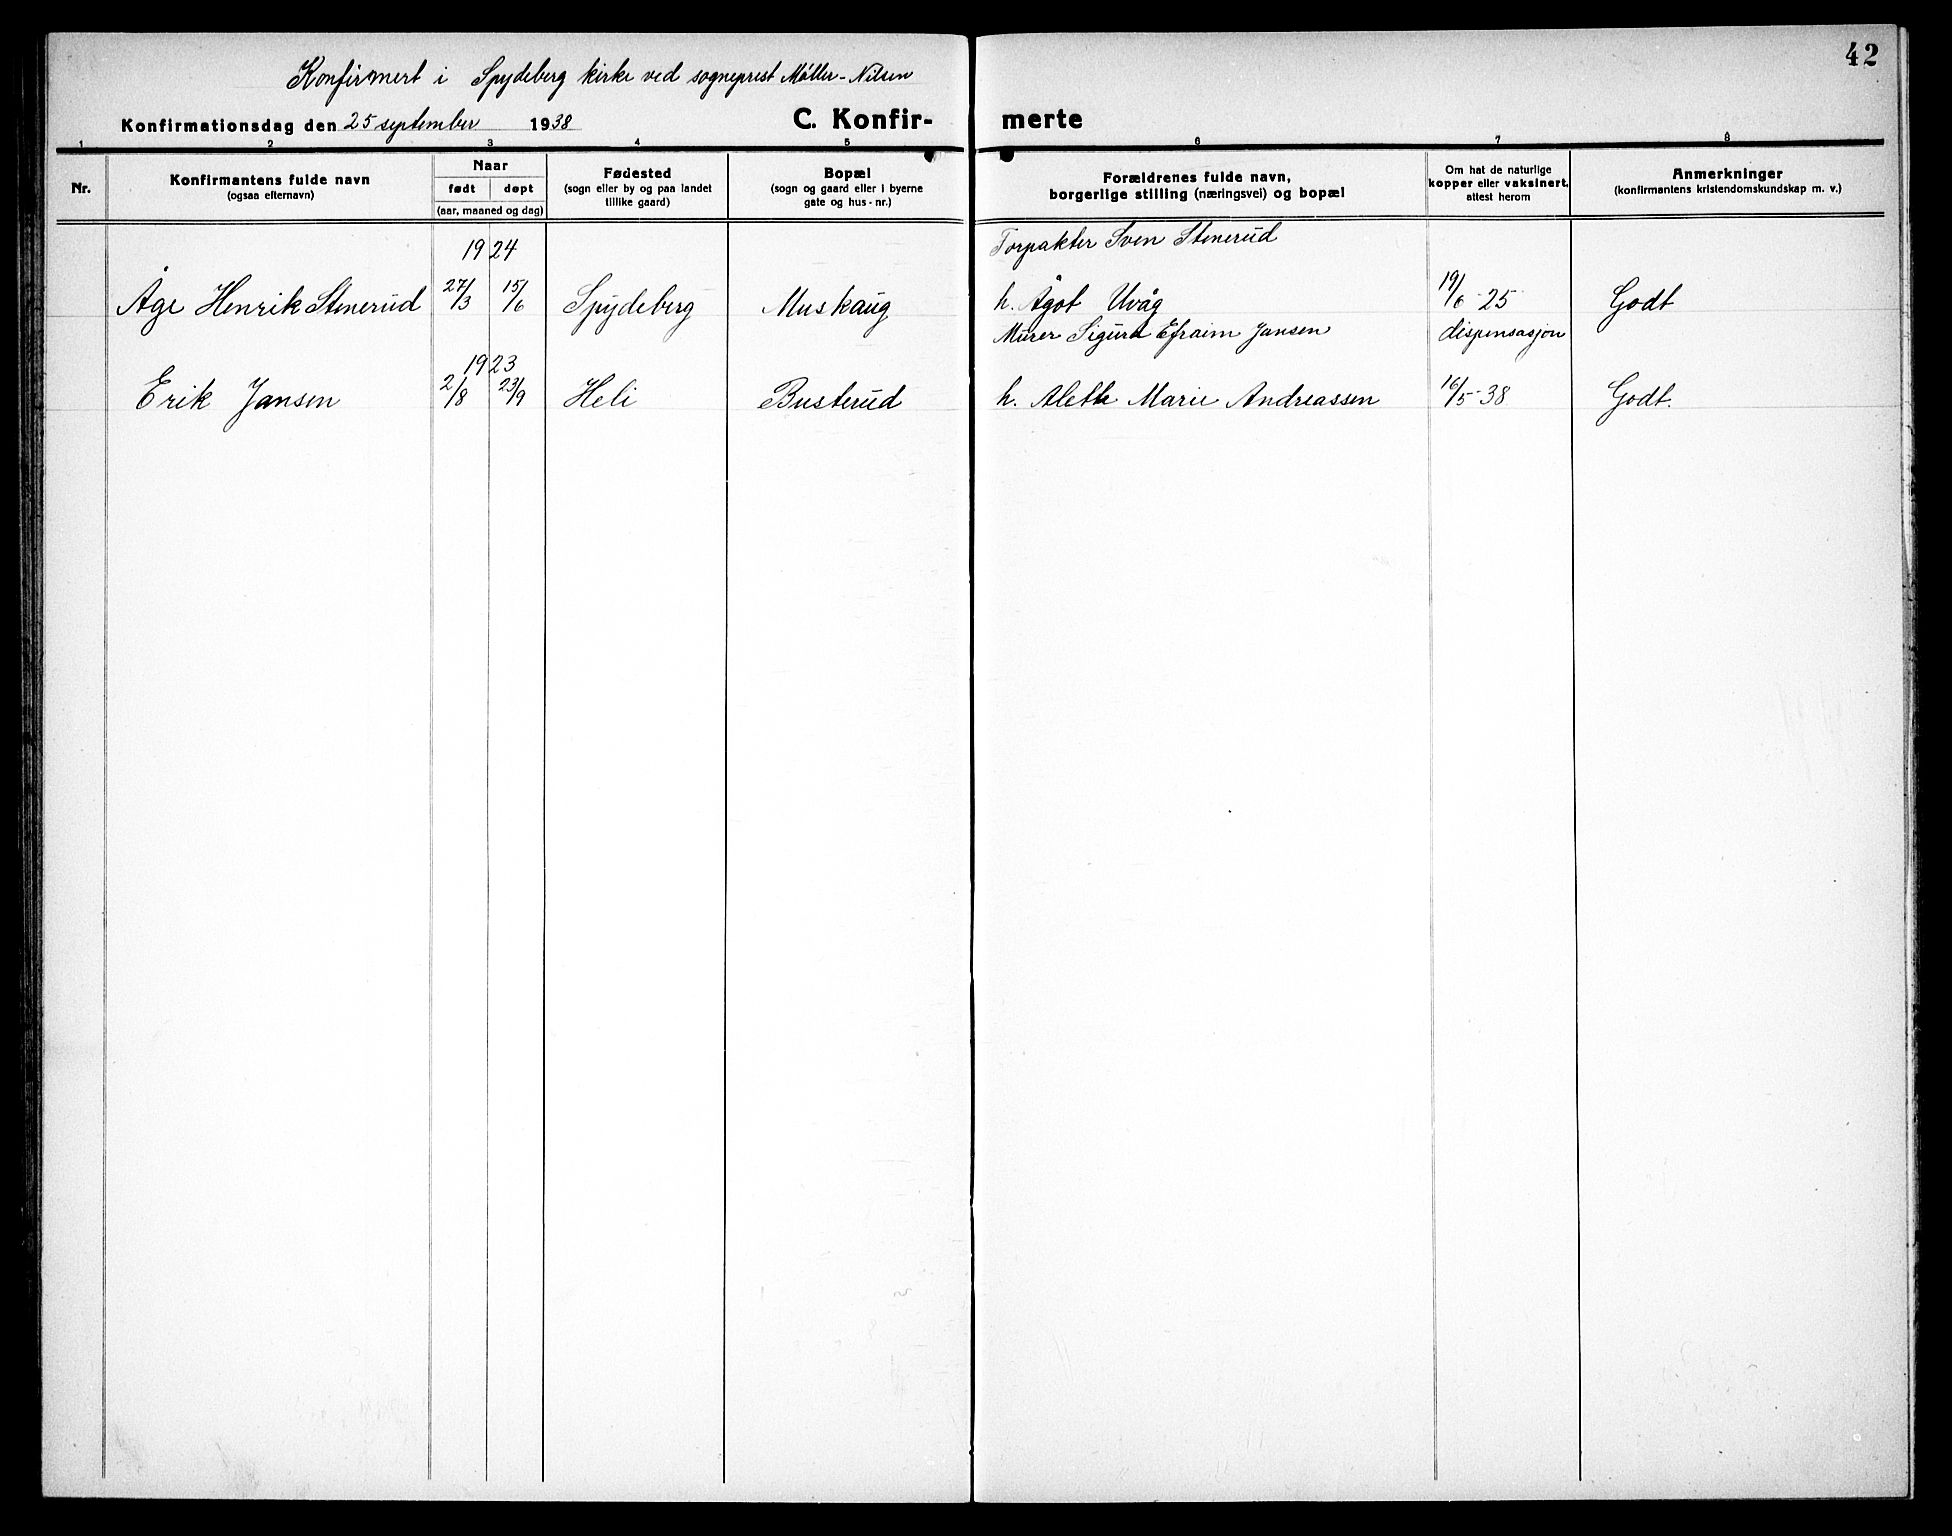 42
Konfirmert i Spydeberg kirke ved sogneprest Møller-Nilsen
Konfirmationsdag den 25 september 1938
C. Konfir- merte
1 2 3 4 5 6 7 8
Nr.
Konfirmantens fulde navn
(ogsaa efternavn)
Naar
født døpt
(aar, maaned og dag)
Fødested
(sogn eller by og paa landet
tillike gaard)
Bopæl
(sogn og gaard eller i byerne
gate og hus-nr.)
Forældrenes fulde navn,
borgerlige stilling (næringsvei) og bopæl
Om hat de naturlige
kopper eller vaksinert,
attest herom
Anmerkninger
(konfirmantens kristendomskundskap m. v.)
1924 Torpakter Sven Stenerud
Åge Henrik Stenerud 27/3 15/6 Spydeberg Muskaug h. Ågot Uvåg 19/6-25 Godt
1923 Murer Sigurd Efraim Jansen dispensasjon
Erik Jansen 2/8 23/9 Heli Busterud h. Aleth Marie Andreassen 16/5-38 Godt.